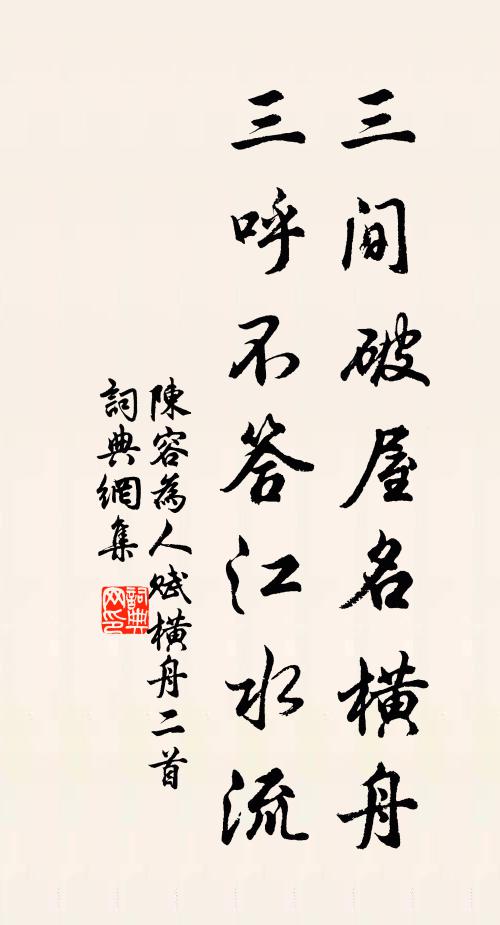 三間破屋名橫舟
三呼不答江水流
陳容為人賦橫舟二首
詞典網集
詞典
网印